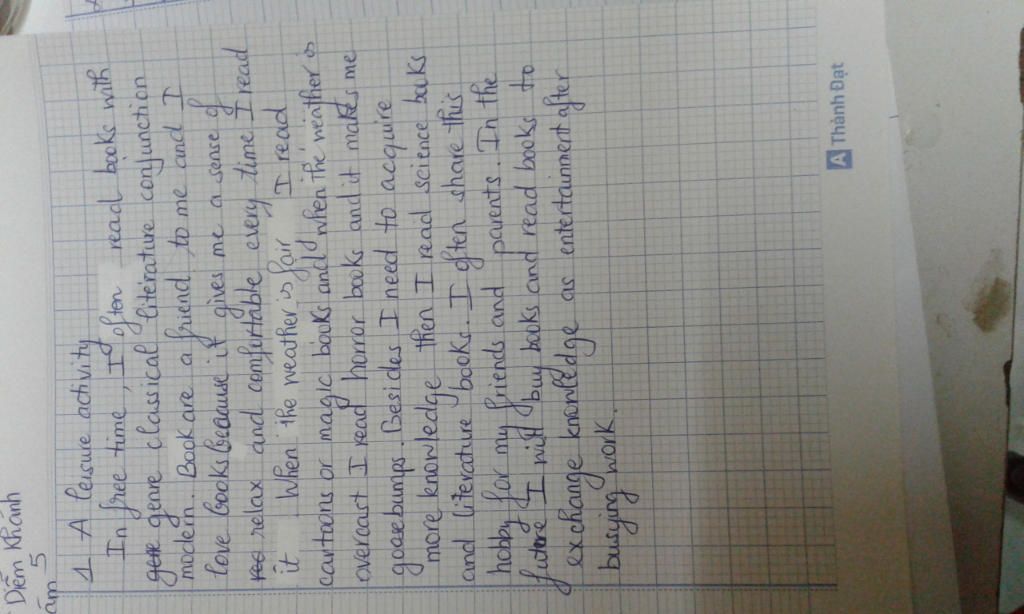 Diễm Khánh
5
1 A leisure activity
In free time, I often read books with
genre classical literature conjunction
modern. Book are a friend to me and I
love books because it gives me a sense of
relax and comfortable every time I read
it. When the weather is fair I read
cartoons or magic books and when the weather is
overcast I read horror books and it makes me
goosebumps. Besides I need to acquire
more knowledge then I read science books
and literature books. I often share this
hobby for my friends and parents. In the
future I will buy books and read books to
exchange knowledge as entertainment after
busying work.
A Thành Đạt